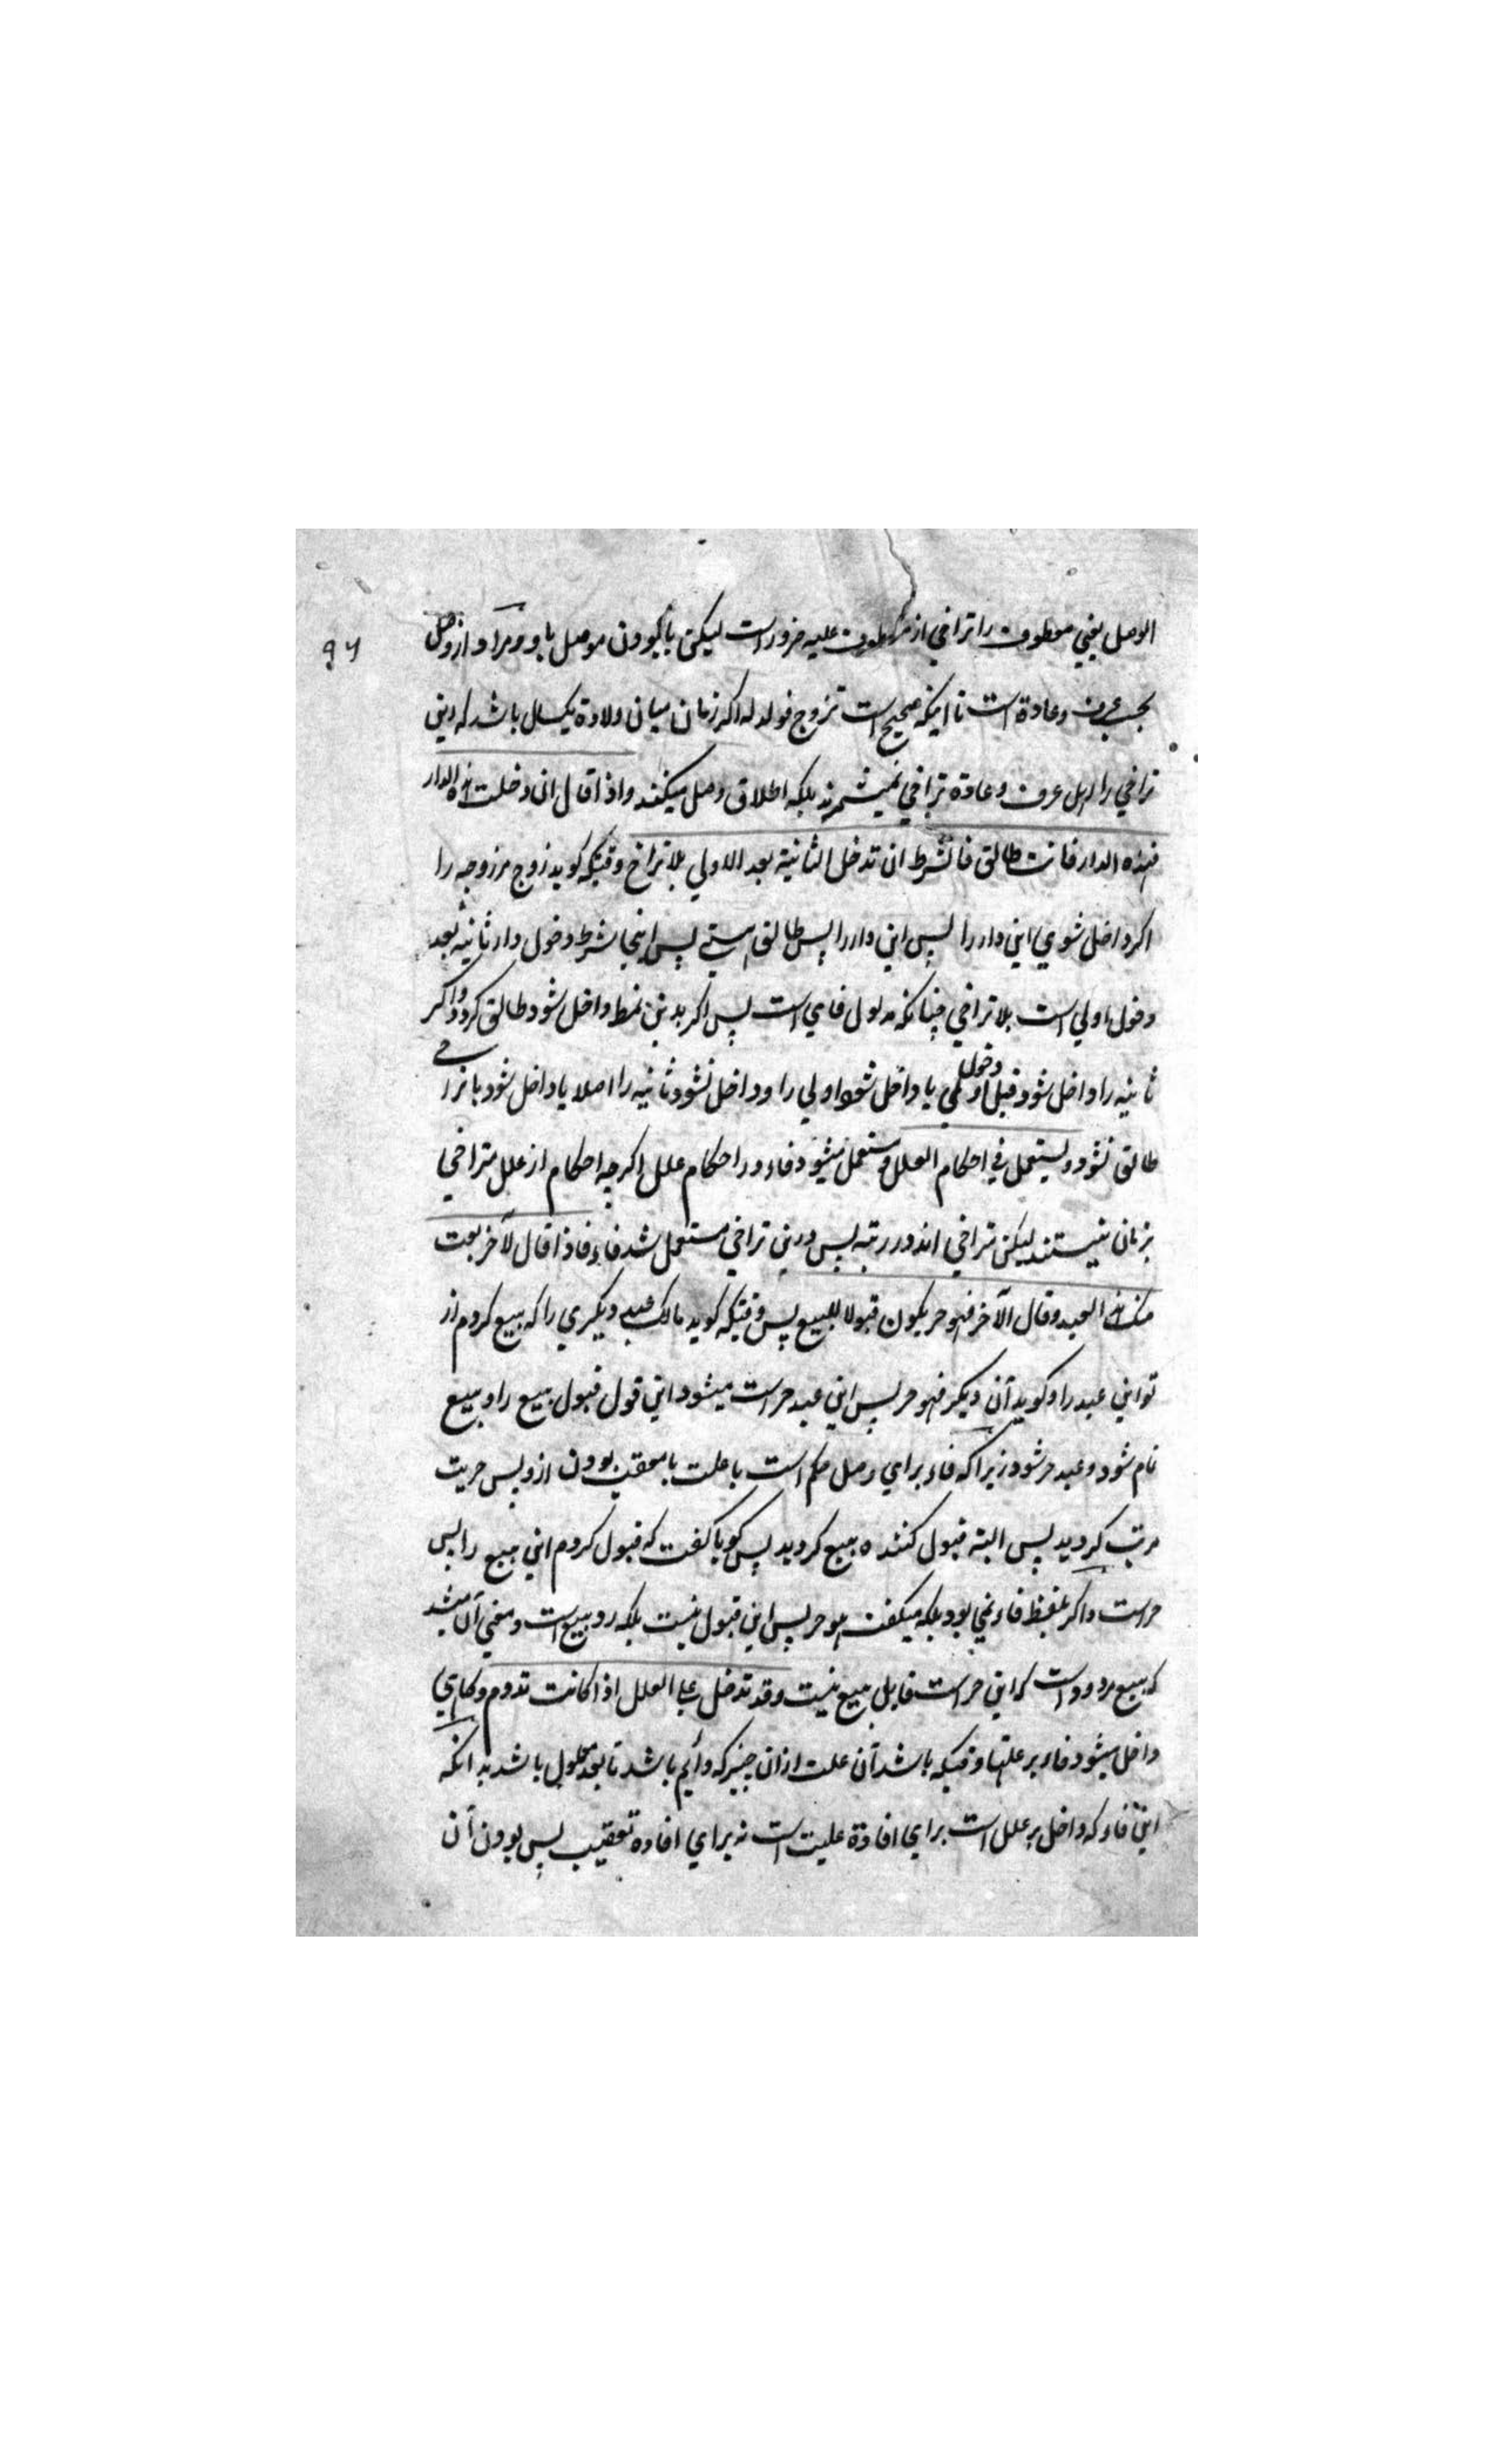 الوصل یعني معطوف را تراخي از معطوف علیه ضرور است لیکن با بودن موصل باو و مراد از وصل
۹۶
بحسب عرف و عادة است تا اینکه صحیح است تزوج فولد له اکر زمان میان ولادة یکسال باشد که درین
تراخي را اهل عرف و عادة تراخي نمیشمرند بلکه اطلاق وصل میکنند واذا قال ان دخلت هذه الدار
فهذه الدار فانت طالق فالشرط ان تدخل الثانیة بعد الاولي بلا تراخ وقتیکه کوید زوج مر زوجه را
اکر داخل شوي این دار را پس این دار را پس طالق هستي پس اینجا شرط دخول دار ثانیه بعد
دخول اولي است بلا تراخي چنانکه مدلول فاي است پس اکر بدین نمط داخل شود طالق کردد و اکر
ثانیه را داخل شود قبل دخول اولي یا داخل شود اولي را و داخل نشود ثانیه را اصلا یا داخل شود باتراخي
طالق نشود ویستعمل في احکام العلل و مستعمل میشود فاء در احکام علل اکرچه احکام از علل متراخي
بزمان نیستند لیکن متراخي اند در رتبه پس درین تراخي مستعمل شد فاء فاذا قال لآخر بعت
منك هذا العبد وقال الآخر فهو حر یکون قبولا للبیع پس وقتیکه کوید مالک عبد دیکري را که بیع کردم از
تو این عبد را و کوید آن دیکر فهو حر پس این عبد حر است میشود این قول قبول بیع را و بیع
تام شود و عبد حر شود زیراکه فاء براي وصل حکم است با علت با معقب بودن ازو پس حریت
مرتب کردید پس البته قبول کننده بیع کردید پس کویا کفت که قبول کردم این بیع را پس
حر است و اکر بلفظ فاء نمي بود بلکه میکفت هو حر پس این قبول نیست بلکه رد بیع است و معني آن باشد
که بیع مردود است که این حر است قابل بیع نیست وقد تدخل علي العلل اذا کانت تدوم و کاهي
داخل میشود فاء بر علتها وقتیکه باشد آن علت ازان چیز که دایم باشد تا بعد معلول باشد بدانکه
این فاء که داخل بر علل است براي افادة علیت است نه براي افاده تعقیب پس بودن آن